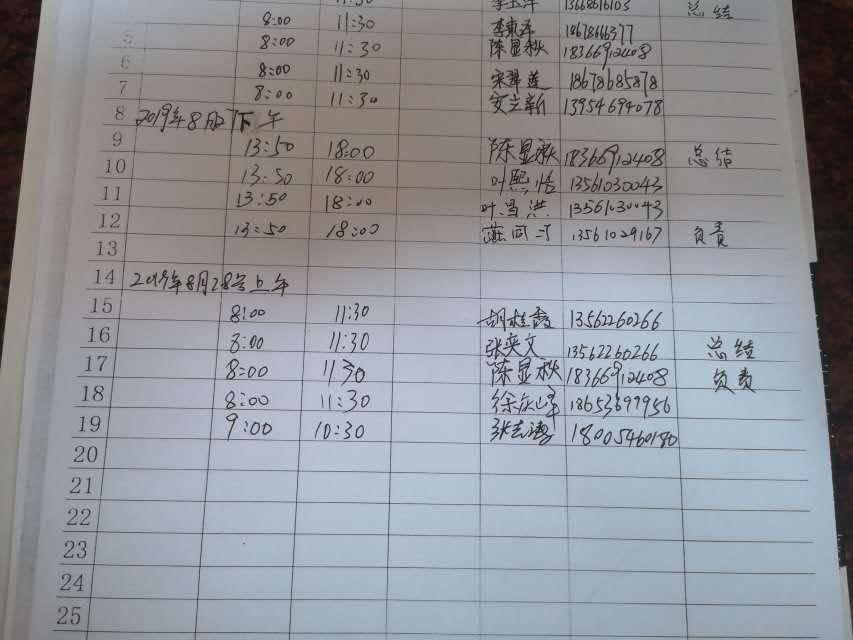 11:30 李玉萍 13668616103 总结
8:00 11:30 李東泽 18678666377
5 8:00 11:30 陈显秋 18366912408
6 8:00 11:30 18678685878
7 8:00 11:30 安立新 13954694078
8 2019年8月 下午
9 13:50 18:00 陈显秋 18366912408 总结
10 13:50 18:00 叶熙恬 13561030043
11 13:50 18:00 叶昌洪 13561030043
12 13:50 18:00 13561029167 负责
13
14 2019年8月28号上午
15 8:00 11:30 胡桂霞 13562260266
16 8:00 11:30 张奕文 13562260266 总结
17 8:00 11:30 陈显秋 18366912408 负责
18 8:00 11:30 徐庆峰 18653699956
19 9:00 10:30 18005460180
20
21
22
23
24
25